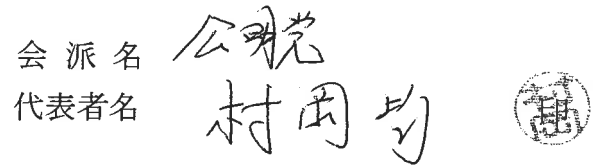 会派名 公明党
代表者名 村岡 均